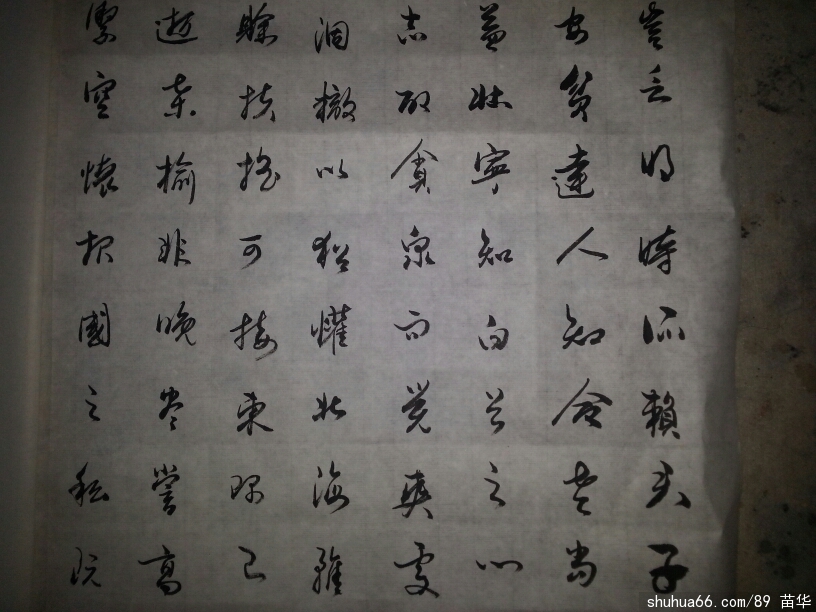 豈乏明時所賴君子
安貧達人知命老當
益壯寧知白首之心
志酌貪泉而覺爽處
涸轍以猶懽北海雖
賒扶搖可接東隅已
逝桑榆非晚孟嘗高
潔空懷報國之私阮
shuhua66.com/89 苗华